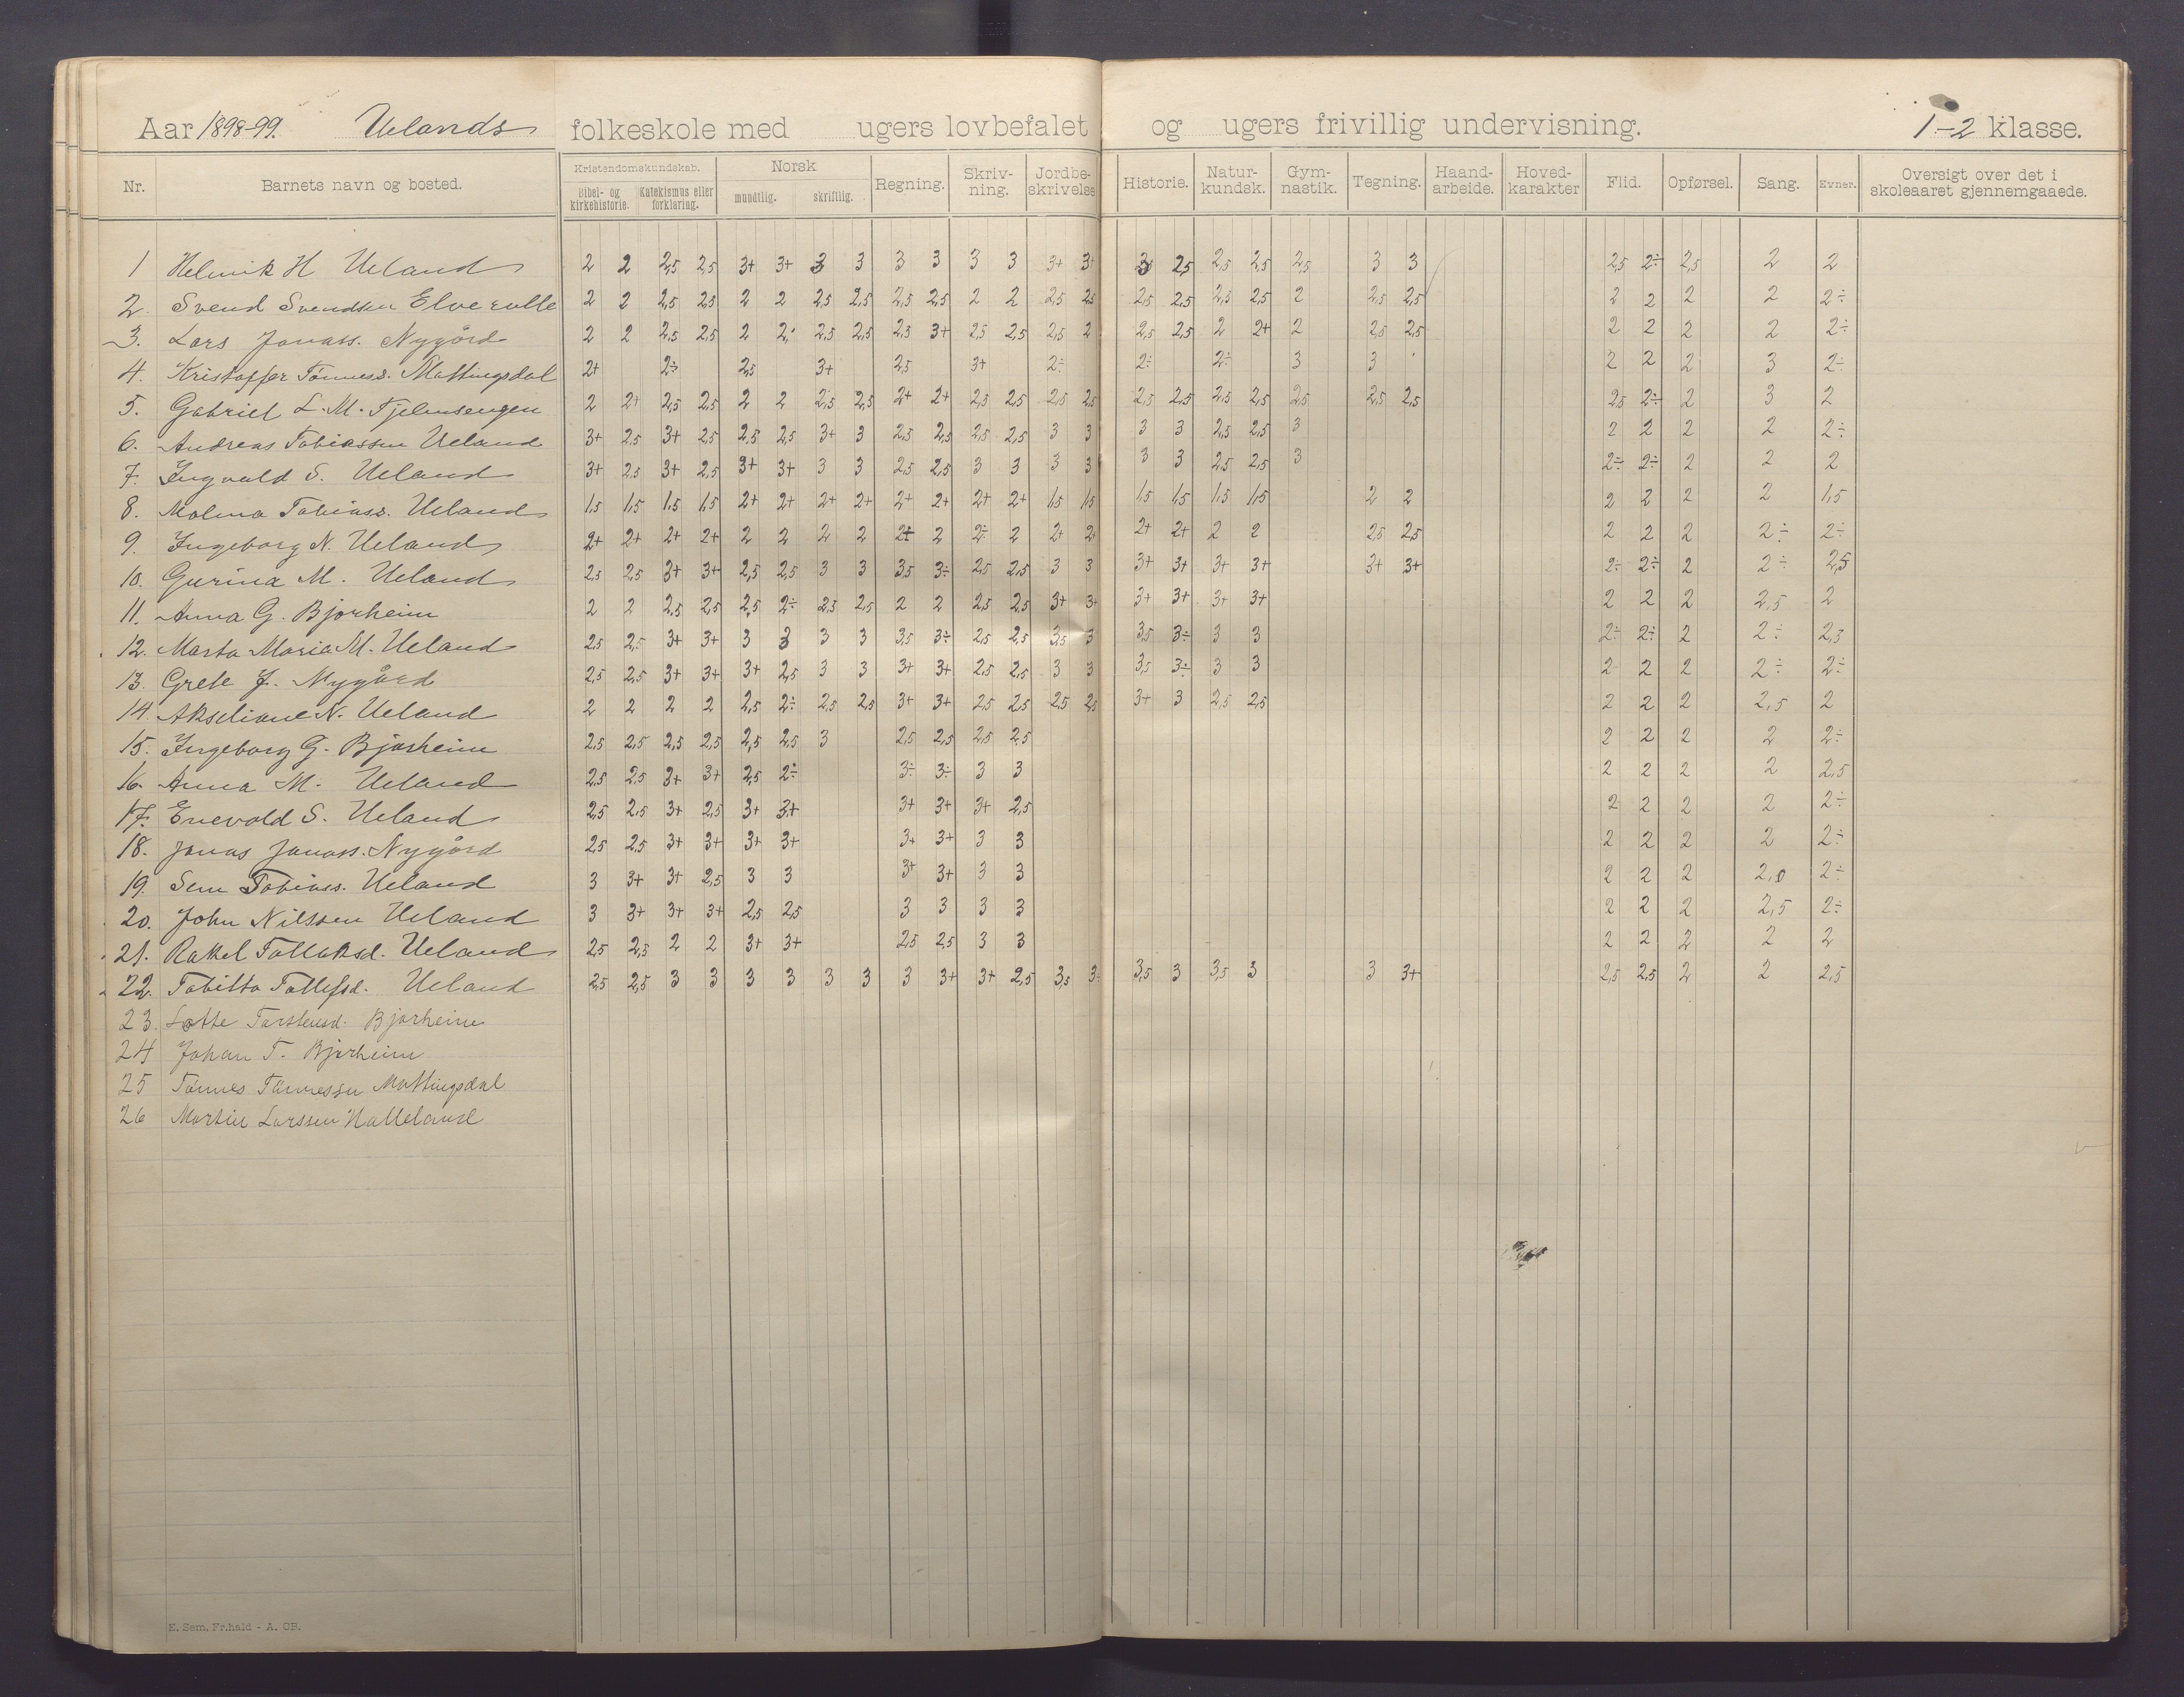 Aar 1898-99. Uelands folkeskole med ugers lovbefalet og ugers frivillig undervisning. 1-2 klasse.
Nr. Barnets navn og bosted. Kristendomskundskab. Bibel- og kirkehistorie. Katekismus eller forklaring. Norsk mundtlig. skriftlig. Regning. Skriv-ning. Jordbe-skrivelse Historie. Natur-kundsk. Gym-nastik. Tegning. Haand-arbeide. Hoved-karakter Flid. Opførsel. Sang. Evner. Oversigt over det i skoleaaret gjennemgaaede.
1 Helmik H Ueland 2 2 2,5 2,5 3+ 3+ 3 3 3 3 3 3 3+ 3+ 3 2,5 2,5 2,5 2,5 3 3 2,5 2÷ 2,5 2 2
2. Svend Svendsen 2 2 2,5 2,5 2 2 2,5 2,5 2,5 2,5 2 2 2,5 2,5 2,5 2,5 2,5 2,5 2 2,5 2,5 2 2 2 2 2÷
3. Lars Jonass. Nygård 2 2 2,5 2,5 2 2÷ 2,5 2,5 2,5 3+ 2,5 2,5 2,5 2 2,5 2,5 2 2+ 2 2,5 2,5 2 2 2 2 2÷
4. Kristoffer Tönness. Mattingsdal 2+ 2÷ 2,5 3+ 2,5 3+ 2÷ 2÷ 2÷ 3 3 2 2 2 3 2÷
5. Gabriel L. M. Tjelmsengen 2 2+ 2,5 2,5 2 2 2,5 2,5 2+ 2+ 2,5 2,5 2,5 2,5 2,5 2,5 2,5 2,5 2,5 2,5 2,5 2,5 2÷ 2 3 2
6. Andreas Tobiassen Ueland 3+ 2,5 3+ 2,5 2,5 2,5 3+ 3 2,5 2,5 2,5 2,5 3 3 3 3 2,5 2,5 3 2 2 2 2 2÷
7. Ingvald S. Ueland 3+ 2,5 3+ 2,5 3+ 3+ 3 3 2,5 2,5 3 3 3 3 3 3 2,5 2,5 3 2÷ 2÷ 2 2 2
8. Malena Tobiass. Ueland 1,5 1,5 1,5 1,5 2+ 2+ 2+ 2+ 2+ 2+ 2+ 2+ 1,5 1,5 1,5 1,5 1,5 1,5 2 2 2 2 2 2 1,5
9. Ingeborg N. Ueland 2+ 2+ 2+ 2+ 2 2 2 2 2+ 2 2÷ 2 2+ 2 2+ 2+ 2 2 2,5 2,5 2 2 2 2÷ 2÷
10. Gurina M. Ueland 2,5 2,5 3+ 3+ 2,5 2,5 3 3 3,5 3÷ 2,5 2,5 3 3 3+ 3+ 3+ 3+ 3+ 3+ 2÷ 2÷ 2 2÷ 2,5
11. Anna G. Bjorheim 2 2 2,5 2,5 2,5 2÷ 2,5 2,5 2 2 2,5 2,5 3+ 3+ 3+ 3+ 3+ 3+ 2 2 2 2,5 2
12. Marta Maria M. Ueland 2,5 2,5 3+ 3+ 3 3 3 3 3,5 3÷ 2,5 2,5 3,5 3 3,5 3÷ 3 3 2÷ 2÷ 2 2÷ 2,5
13. Grete J. Nygård 2,5 2,5 3+ 3+ 3+ 2,5 3 3 3+ 3+ 2,5 2,5 3 3 3,5 3÷ 3 3 2 2 2 2÷ 2÷
14. Akseliane N. Ueland 2 2 2 2 2,5 2÷ 2,5 2,5 3+ 3+ 2,5 2,5 2,5 2,5 3+ 3 2,5 2,5 2 2 2 2,5 2
15. Ingeborg G. Bjorheim 2,5 2,5 2,5 2,5 2,5 2,5 3 2,5 2,5 2,5 2,5 2 2 2 2 2÷
16. Anna M. Ueland 2,5 2,5 3+ 3+ 2,5 2÷ 3÷ 3÷ 3 3 2 2 2 2 2,5
17. Enevold S. Ueland 2,5 2,5 3+ 2,5 3+ 3+ 3+ 3+ 3+ 2,5 2 2 2 2 2÷
18. Jonas Jonass. Nygård 2,5 2,5 3+ 3+ 3+ 3+ 3+ 3+ 3 3 2 2 2 2 2÷
19. Sem Tobiass. Ueland 3 3+ 3+ 2,5 3 3 3+ 3+ 3 3 2 2 2 2,0 2÷
20. John Nilssen Ueland 3 3+ 3+ 3+ 2,5 2,5 3 3 3 3 2 2 2 2,5 2÷
21. Rakel Tollaksd. Ueland 2,5 2,5 2 2 3+ 3+ 2,5 2,5 3 3 2 2 2 2 2
22. Tobitta Tollefsd. Ueland 2,5 2,5 3 3 3 3 3 3 3 3+ 3+ 2,5 3,5 3÷ 3,5 3 3,5 3 3 3+ 2,5 2,5 2 2 2,5
23. Lotte Torstensd. Bjorheim
24 Johan T. Bjorheim
25 Tönnes Tönnessen Mattingsdal
26 Martin Larssen Halleland
E. Sem, Fr.hald - A. CB.